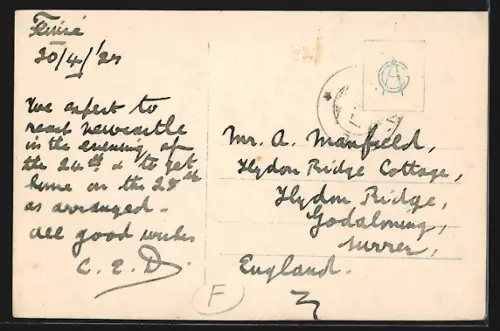 20/4/'27
We expect to
reach Newcastle
in the evening of
the 24th & to get
home on the 25th
as arranged.
All good wishes
C. E. D.
Mr. A. Manfield,
Hydon Ridge Cottage,
Hydon Ridge,
Godalming,
Surrey,
England.
F